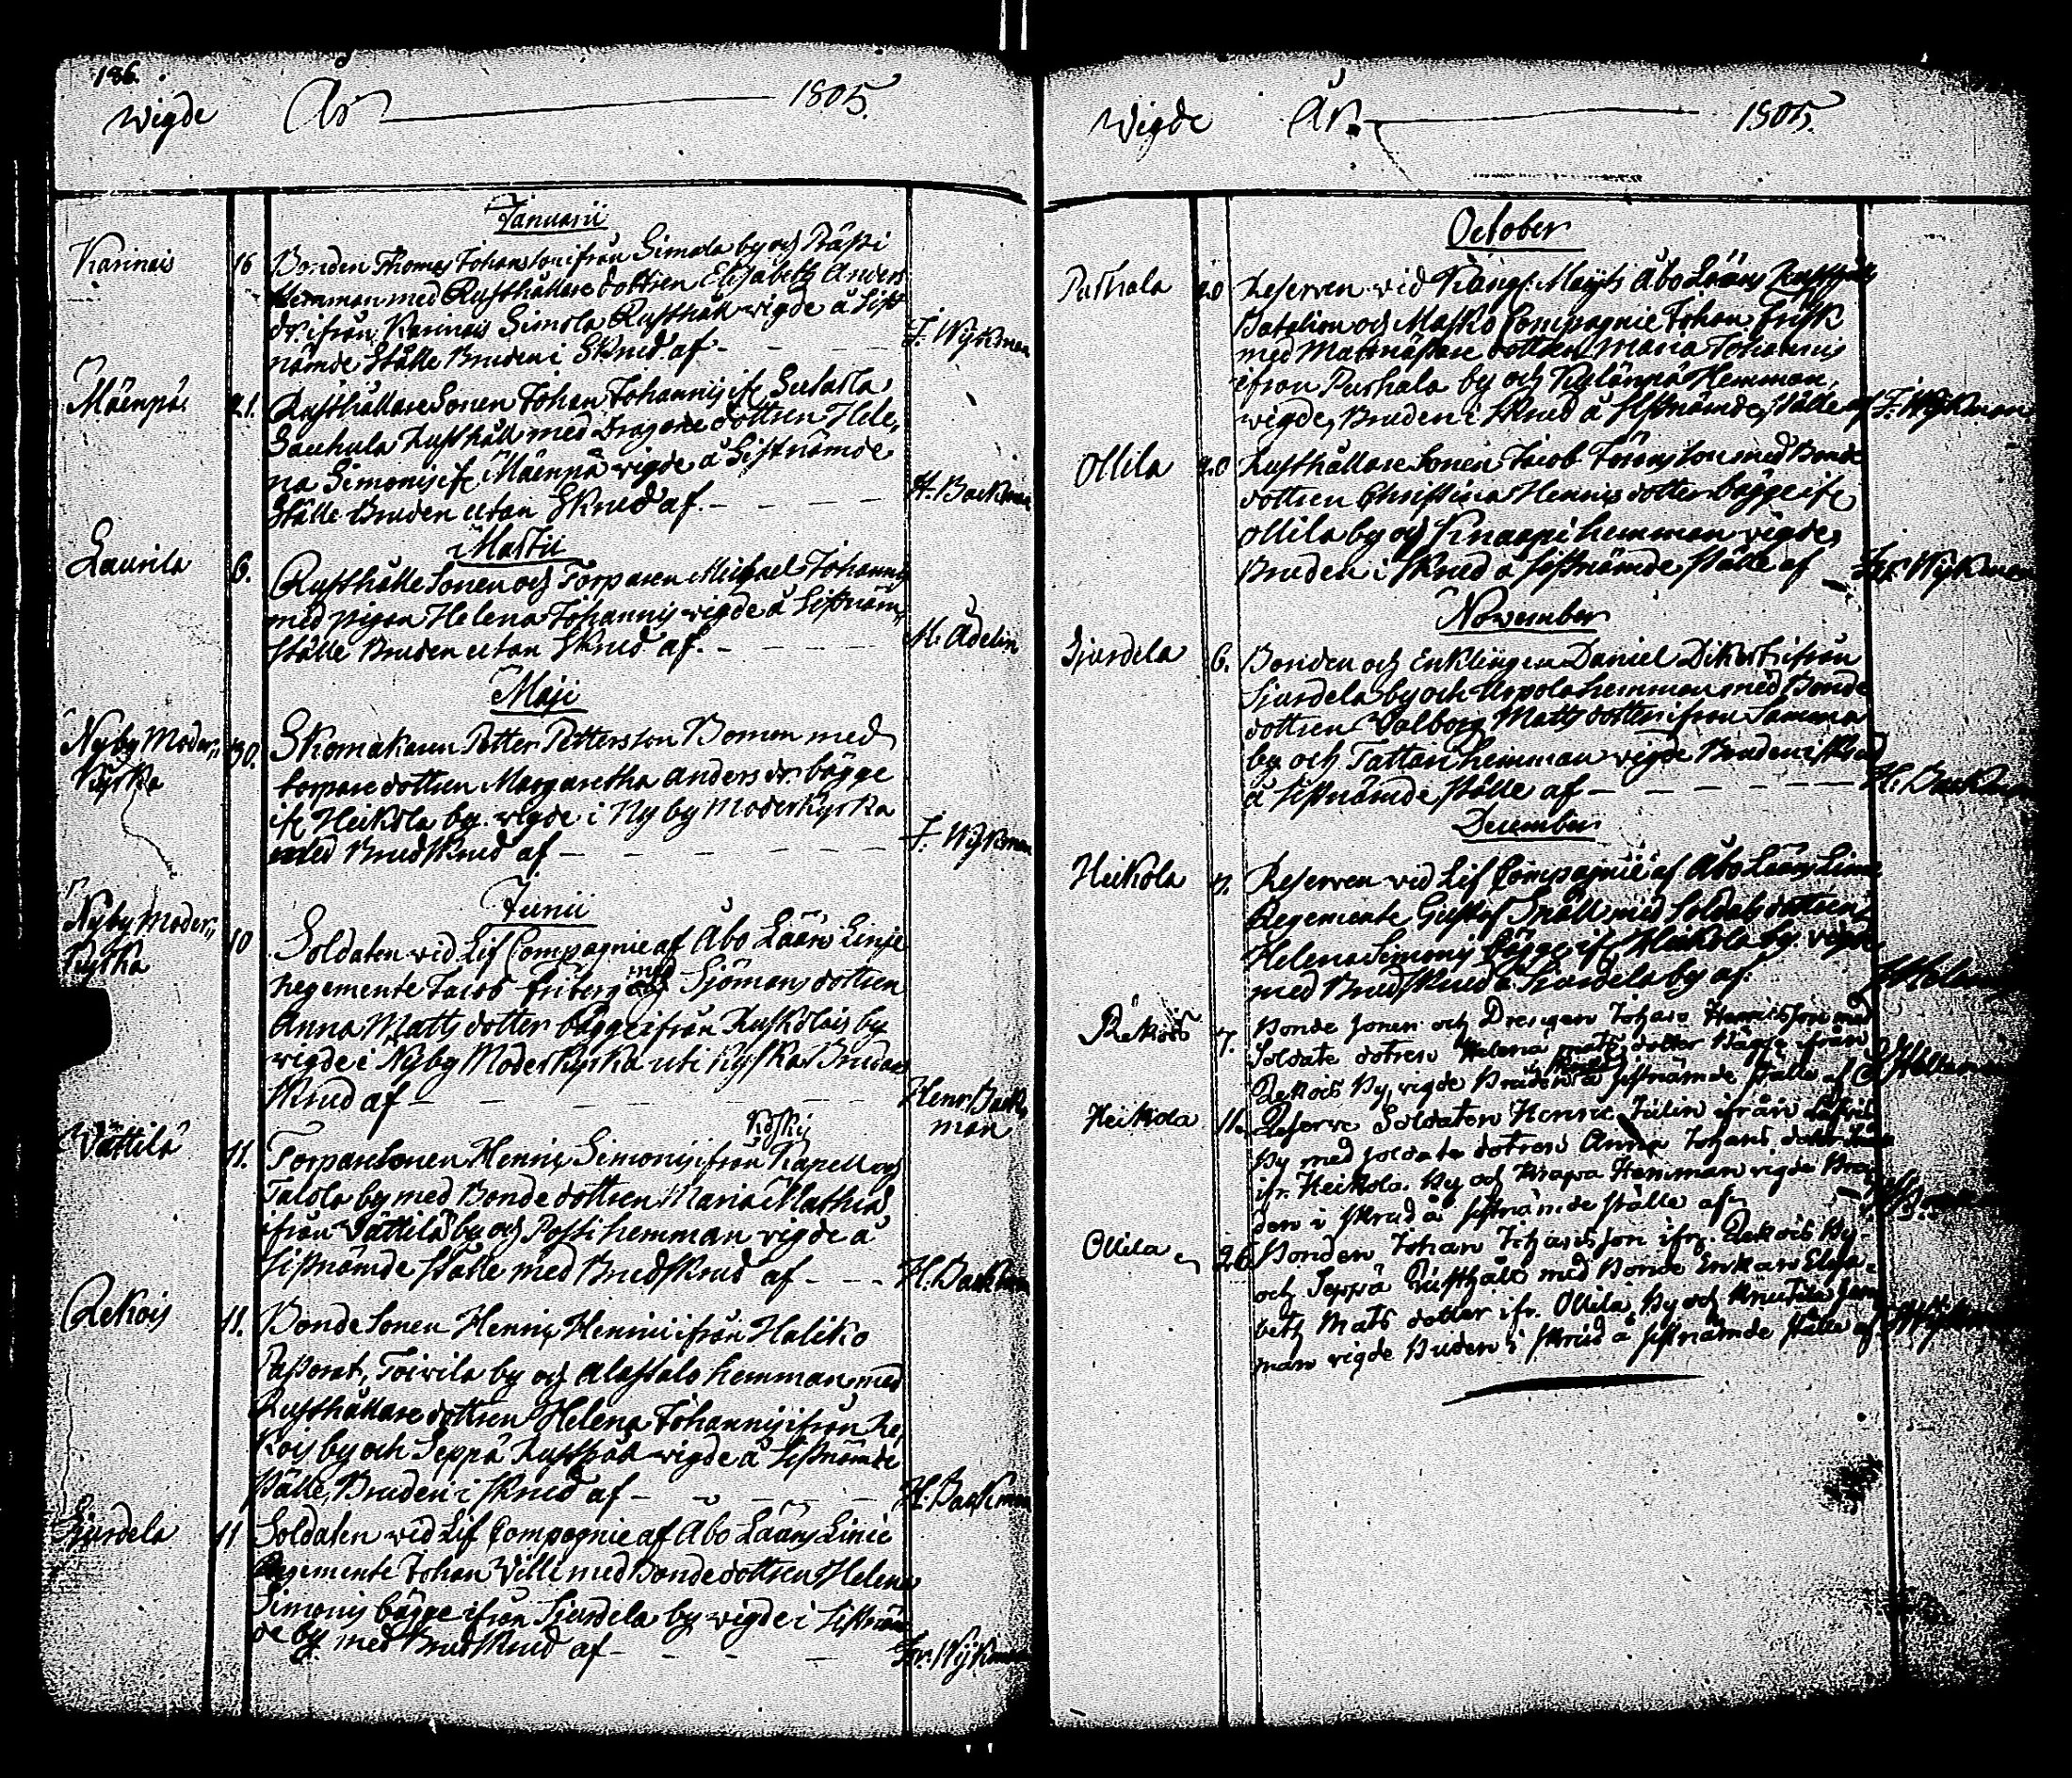 186.
Wigde År 1805.
Januarii
Karinais 16 Bonden Thomas Johansson ifrån Simala by och Päßi
Hemman med Rusthållare dottren Elisabeth Anders
dr. ifrån Karinais Simola Rusthåll wigde å sist
nämde Ställe Bruden i Skrud af - - - - F. Wykman
Mäenpä 21. Rusthållare Sonen Johan Johannis ifr
Rusthåll med Dragone dottren Hele,,
na Simonis ifr Mäenpä wigde å Sistnämde
Ställe Bruden utan Skrud af. - - - - H. Backman
Martii
Laurila 6. Rusthålle Sonen och Torparen Michael Johannis
med pigan Helena Johannis wigde å Sistnäm,,
Ställe Bruden utan Skrud af. - - - - M. Adelin
Maji
Nyby Moder,, 30. Skomakaren Petter Pettersson Boman med
Kyrka torpare dottren Margaretha Anders dr. bägge
ifr Heikola by. wigde i Nyby Moderkyrka
med Brudskrud af - - - - F. Wykman
Junii
Nyby Moder,, 10 Soldaten vid Lif Compagnie af Åbo Läns Linje
Kyrka regemente Jacob Friberg med Sjömans dottren
Anna Matts dotter bägge ifrån Ruskolais by
wigde i Nyby Moderkyrka uti Kyrkas Brudas
Skrud af - - - - Henr. Back,,
man
Koskis
Wättilä 11. Torpare Sonen Henric Simonis ifrån Kapell och
Talola by med Bonde dottren Maria Mathiæ
ifrån Wättilä by och Possi hemman wigde å
Sistnämde Ställe med Brudskrud af - - - H. Backman
Rekois 11. Bonde Sonen Henric Henrici ifrån Haliko
Pastorat, Toivila by och Alastalo hemman med
Rusthållare dottren Helena Johannis ifrån Re,,
kois by och Seppä Rusthåll wigde å Sistnämde
Ställe, Bruden i Skrud af - - - - H. Backman
Sjurdela 11 Soldaten vid Lif Compagnie af Åbo Läns Linie
Regemente Johan Vill med Bonde dottren Helena
Simonis bägge ifrån Sjurdela by wigde i Sistnäm
de by. med Brudskrud af - - - - Fr. Wykman
Wigde År. 1805.
October
Purhala 20 Reserven vid Kongl. Maijts Åbo Läns Rusthålls
Batalion och Masko Compagnie Johan Frisk
med dottren Maria Johannis
ifrån Purhala by och Kylänpä Hemman,
wigde, Bruden i Skrud å sistnämde, ställe af F. Wykman
Ollila 20 Rusthållare Sonen Jacob Göransson med Bonde
dottren Christina Henrics dotter bägge ifr
Ollila by och Knaapi hemman wigde,
Bruden i Skrud å sistnämde ställe af - Fr. Wykman
November
Sjurdela 6. Bonden och Enklingen Daniel Dikert ifrån
Sjurdela by och Uppola hemman med Bonde
dottren Valborg Matts dotter ifrån Samma
by och Tattari hemman wigde Bruden i Skrud
å sistnämde, ställe af - - - - H. Backman
December
Heikola 7. Reserven vid Lif Compagnie af Åbo Läns Linie
Regemente Gustaf Snäll med Soldats dottren
Helena Simonis bägge ifr Heikola by. wigde
med Brudskrud å Sjurdela by af.
Rekois 7. Bonde sonen och Drengen Johan Henricsson med
Soldate dotren Helena Mats dotter Bägge ifrån
Rekois By, wigde Bruden å sistnämde ställe af
Heikola 11. Reserve Soldaten Henric Julin ifrån
By med soldate dotren Anna Johans dotter
ifr. Heikola By och Knapa Hemman wigde Bru
den i skrud å sistnämde ställe af
Ollila 26 Bonden Johan Johansson ifr. Rekois By
och Seppä Rusthåll med Bonde Enkan Elisa,
beth Mats dotter ifr. Ollila By och Knutila Hem
man wigde Bruden i skrud å sistnämde ställe af Wykman